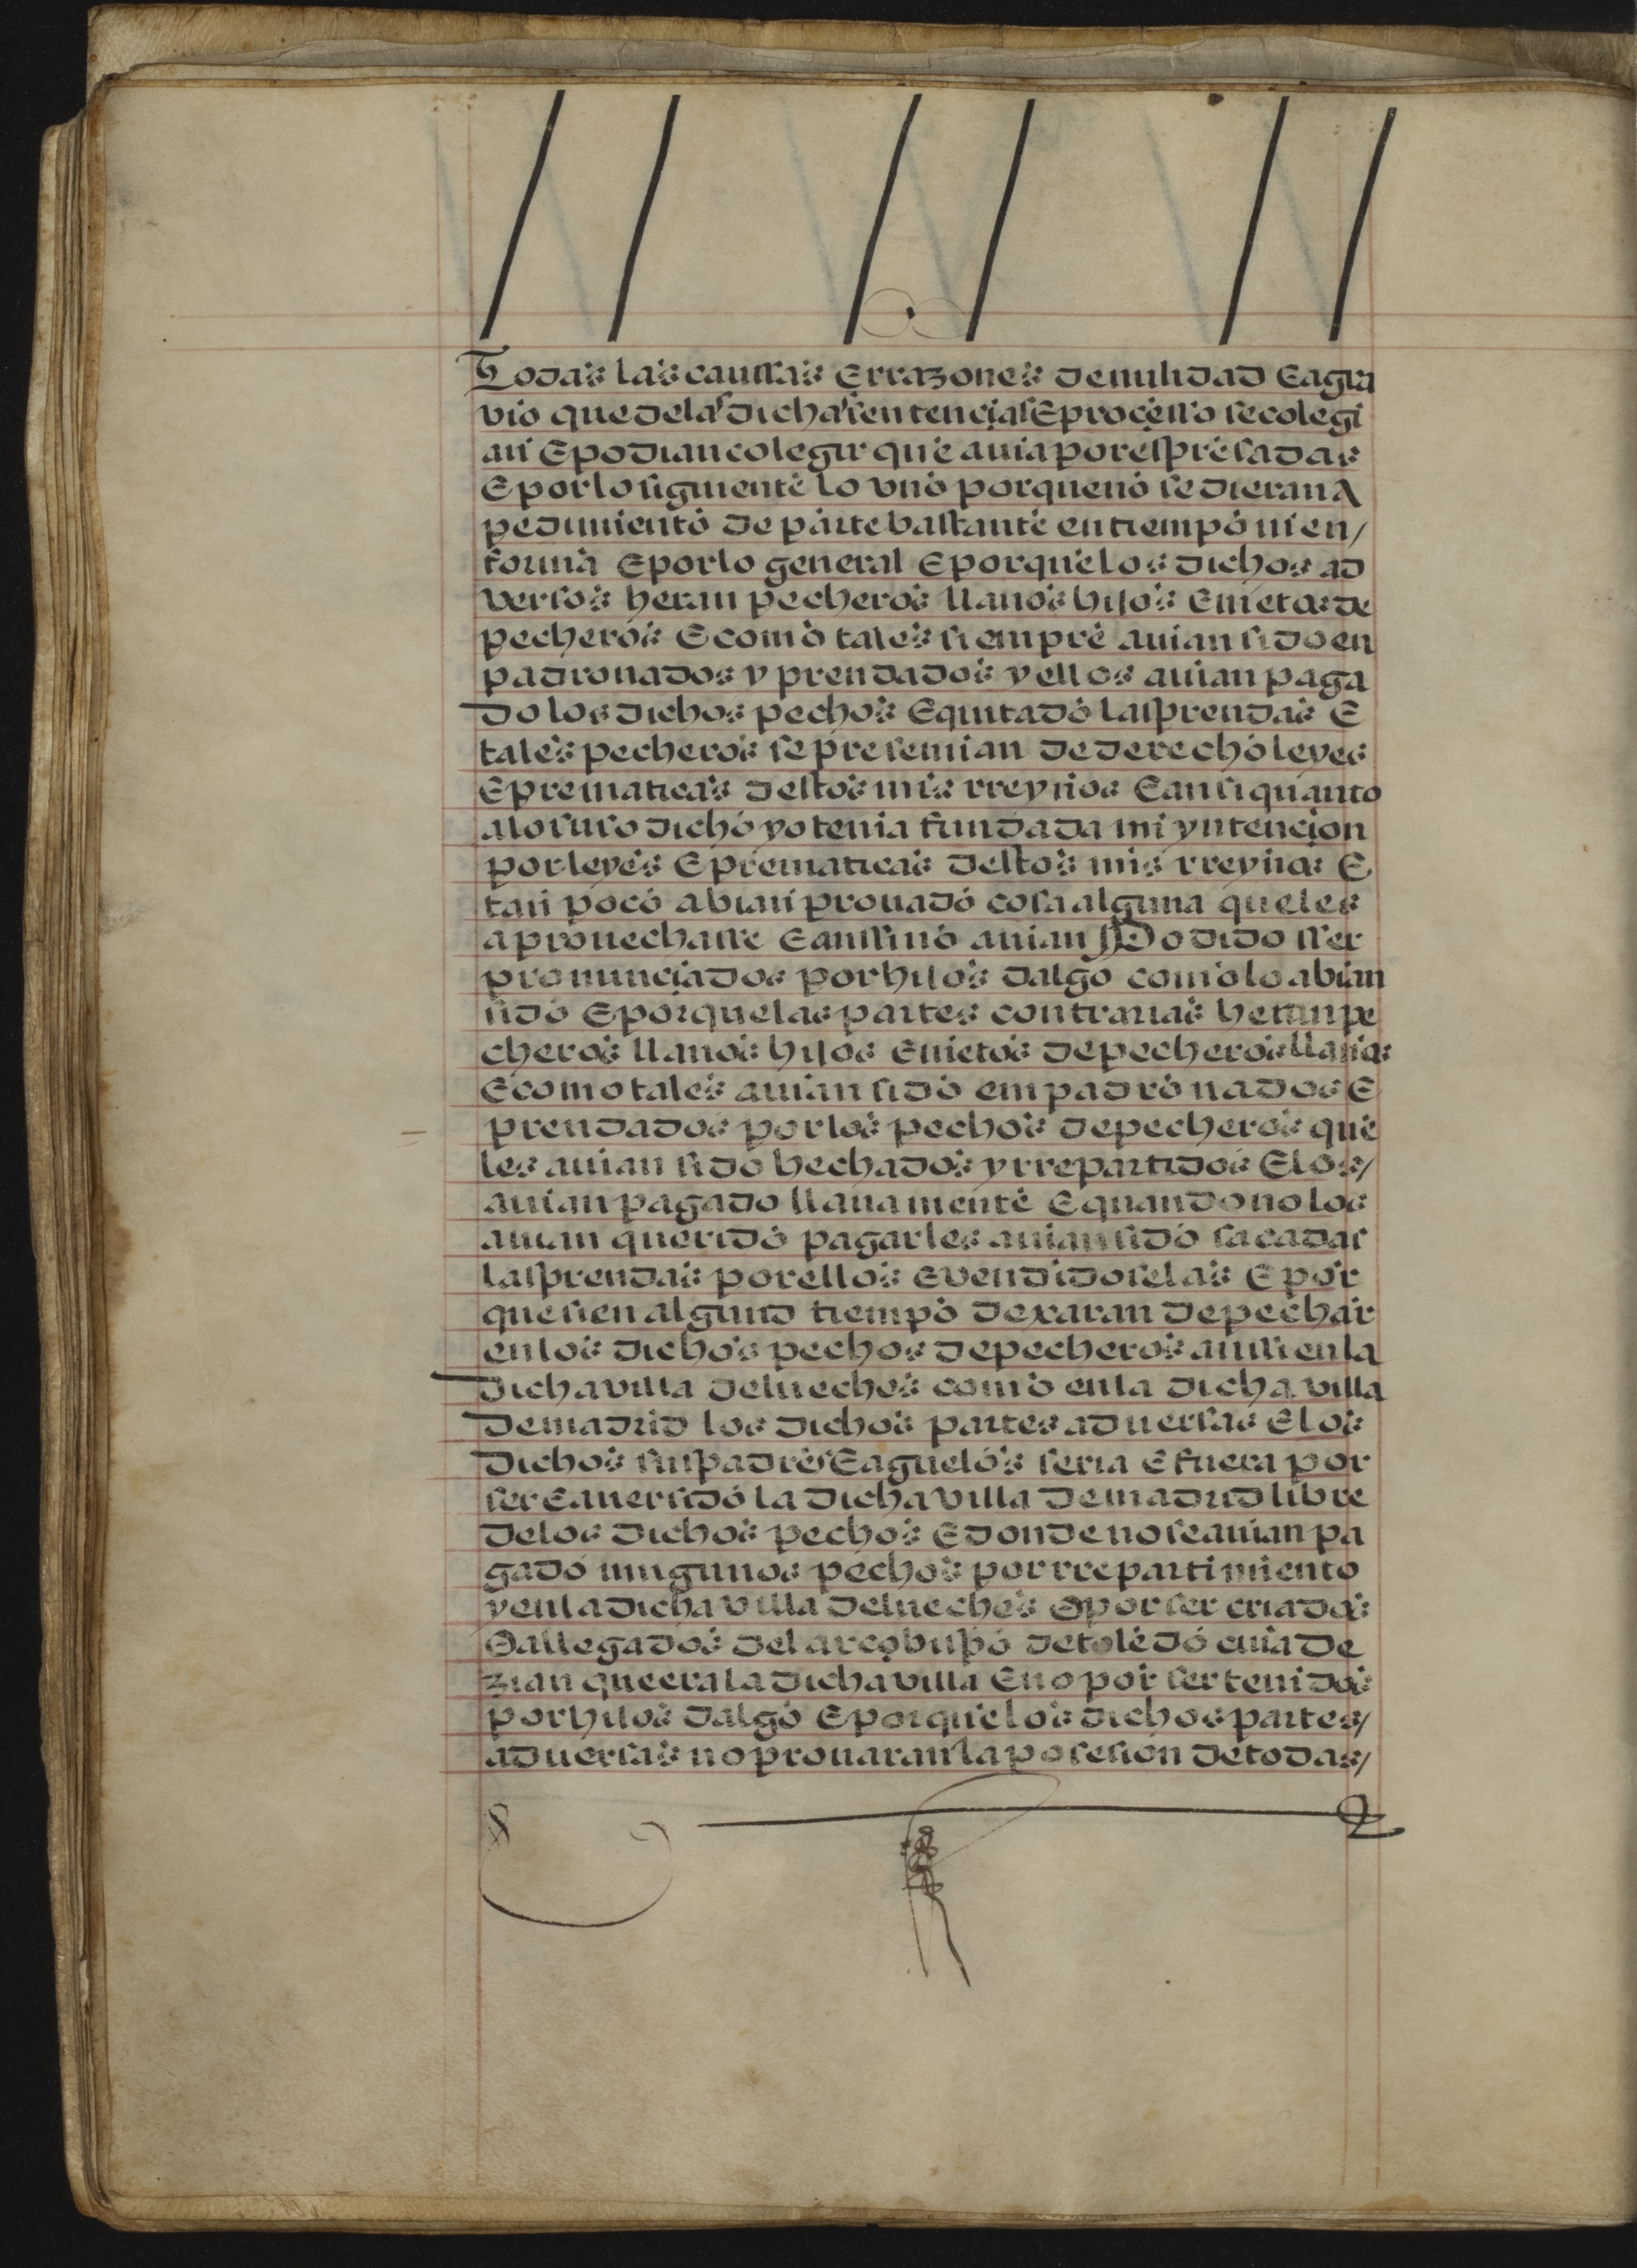 Todas las caussas E rrazones de nulidad E agra
vio que de las dichas sentencias E proçesso se colegi
an E podian colegir que avia por espresadas
E por lo siguiente lo uno porque no se dieran A
pedimiento de parte bastante en tiempo ni en/
forma E por lo general E porque los dichos ad
versos heran pecheros llanos hijos E nietos de
pecheros E como tales siempre auian sido en
padronados y prendados y ellos auian paga
do los dichos pechos E quitado las prendas E
tales pecheros se presemian de derecho leyes
E prematicas destos mis rreynos E ansi quanto
a lo suso dicho yo tenia fundada mi yntençion
por leyes E prematicas destos mis rreynos E
tan poco abian prouado cosa alguna que les
aprouechasse E anssi no auian Podido sser
pronunçiados por hijos dalgo como lo abian
sido E porque las partes contrarias heran pe
cheros llanos hijos E nietos de pecheros llanos
E como tales auian sido empadronados E
prendados por los pechos de pecheros que
les auian sido hechados y rrepartidos E los/
auian pagado llanamente E quando no los
auian querido pagarles auian sido sacadas
las prendas por ellos E vendidoselas E por
que si en algund tiempo dexaran de pechar
en los dichos pechos de pecheros anssi en la
dicha villa de lueches como en la dicha villa
de madrid los dichos partes aduersas E los
dichos sus padres E aguelos seria E fuera por
ser E auer sido la dicha villa de madrid libre
de los dichos pechos E donde no se auian pa
gado ningunos pechos por rrepartimiento
y en la dicha villa de lueches O por ser criados
O allegados del arçobispo de toledo cuia de
zian que era la dicha villa E no por ser tenidos
por hijos dalgo E porque los dichos partes/
aduersas no prouaran la posesion de todas/